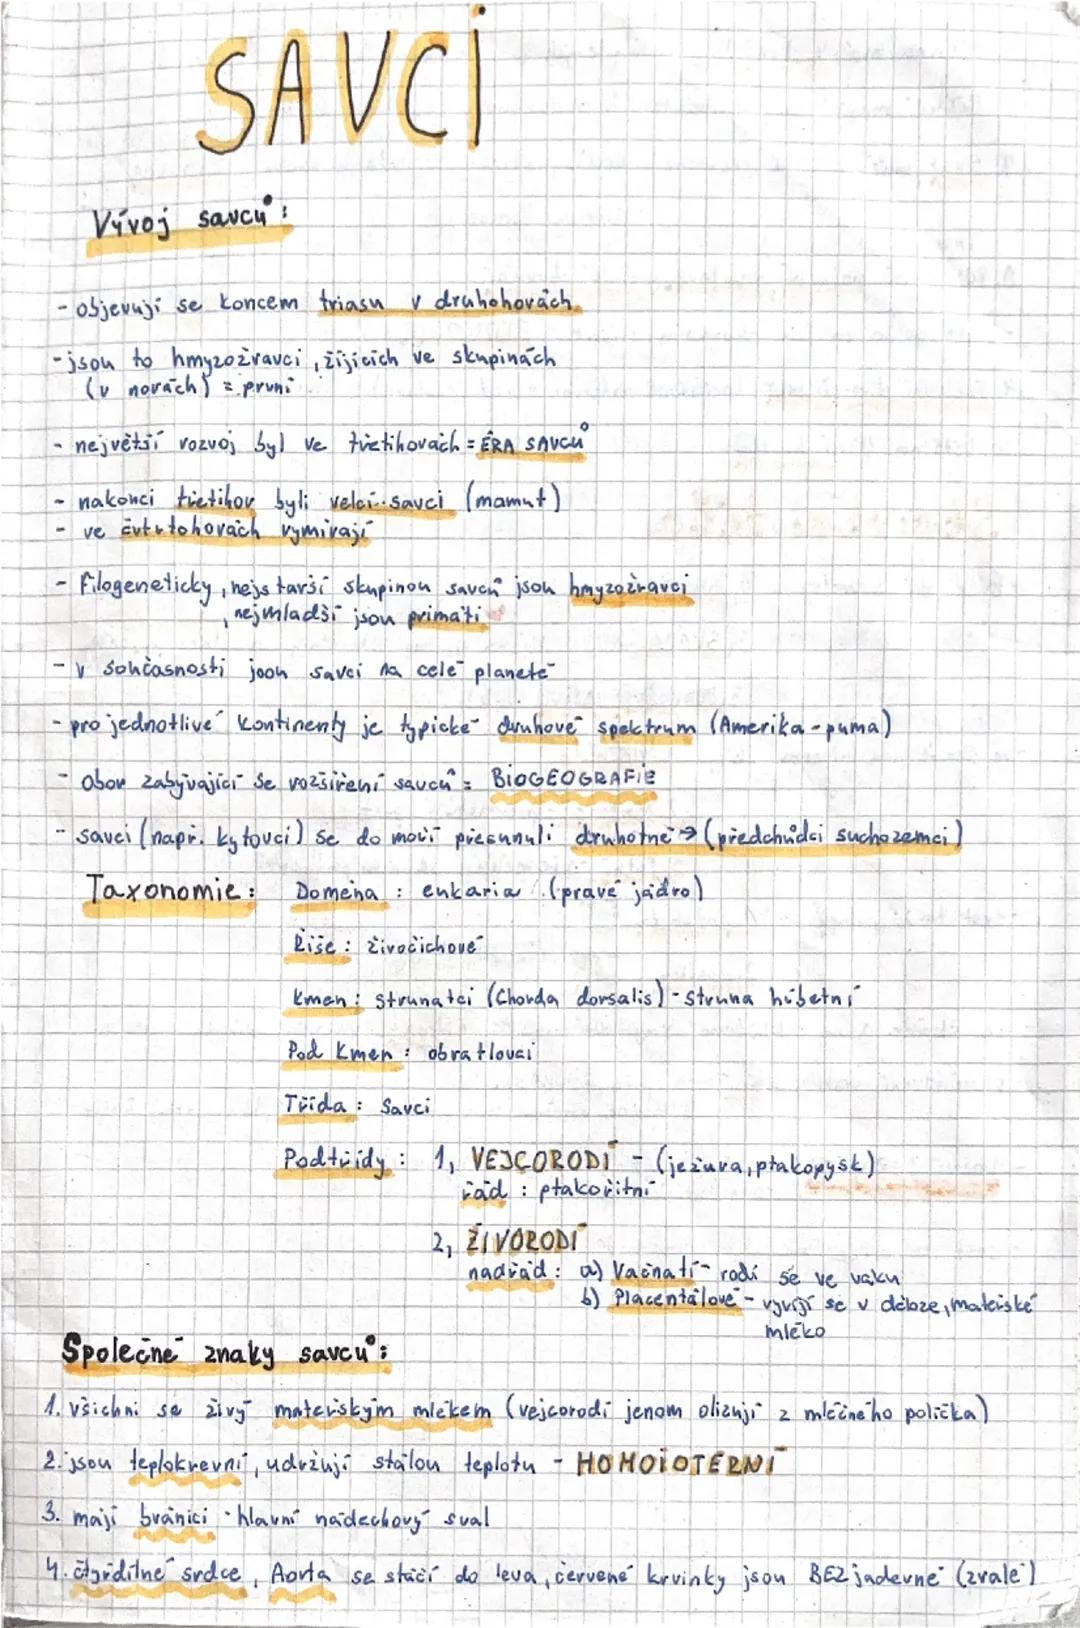 SAVCÍ
Vývoj savců:
- objevují se koncem triasu v druhohorách
- jsou to hmyzožravci, žijících ve skupinách
(v norách) = první
- největší rozvoj byl ve třetihorách = ÉRA SAVCŮ
- nakonci třetihor byli velcí savci (mamut)
- ve čtvrtohorách vymírají
- Filogeneticky, nejstarší skupinou savců jsou hmyzožravci
, nejmladší jsou primáti
- v současnosti jsou savci na celé planetě
- pro jednotlivé kontinenty je typické druhové spektrum (Amerika - puma)
- obor zabývající se rozšíření savců = BIOGEOGRAFIE
- savci (např. kytovci) se do moří přesunuli druhotně → (předchůdci suchozemci)
Taxonomie: Doména : eukaria (pravé jádro)
Říše : živočichové
Kmen : strunatci (Chorda dorsalis) - struna hřbetní
Pod kmen : obratlovci
Třída : Savci
Podtřídy : 1, VEJCORODÍ - (ježura, ptakopysk)
řád : ptakořitní
2, ŽIVORODÍ
nadřád : a) Vačnatí - rodí se ve vaku
b) Placentálové - vyvíjí se v děloze, mateřské
mléko
Společné znaky savců:
1. všichni se živý mateřským mlékem (vejcorodí jenom olizují z mléčného políčka)
2. jsou teplokrevní, udržují stálou teplotu - HOMOIOTERNÍ
3. mají bránici - hlavní nádechový sval
4. čtyřdílné srdce, Aorta se stáčí do leva, červené krvinky jsou BEZ jaderné (zralé)